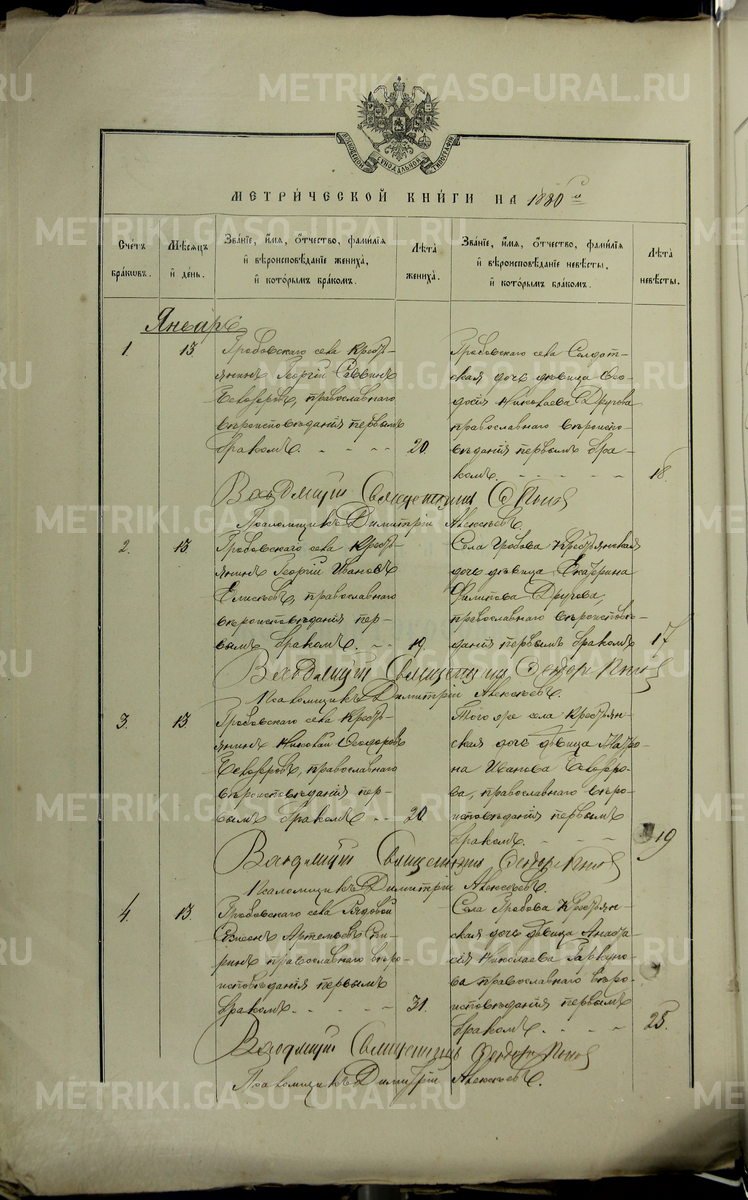 METRIKI.GASO-URAL.RU
МЕТРИ́ЧЕСКОЙ КНИ́ГИ НА 1880 й
Сче́тъ бра́ковъ.
Мѣ́сяцъ и҆ день.
Зва́нїе, и҆́мя, ѻ҆́тчество, фами́лїя и҆ вѣроисповѣ́данїе жениха̀, и҆ кото́рымъ бра́комъ.
Лѣ́та жениха̀.
Зва́нїе, и҆́мя, ѻ҆́тчество, фами́лїя и҆ вѣроисповѣ́данїе невѣ́сты, и҆ кото́рымъ бра́комъ.
Лѣ́та невѣ́сты.
Январь
1. 13
Гробовскаго села Кресть-
янинъ Георгій Саввинъ
православнаго
вѣроисповѣданія первымъ
бракомъ. 20.
Гробовскаго села Солдат-
ская дочь дѣвица Ѳео-
досія Николаева Другова
православнаго вѣроиспо-
вѣданія первымъ бра-
комъ. 18.
Священникъ
Псаломщикъ Димитрій Алексѣевъ.
2. 13
Гробовскаго села Кресть-
янинъ Георгій Ивановъ
Елисѣевъ, православнаго
вѣроисповѣданія пер-
вымъ бракомъ. 19.
Села Гробова Крестьянская
дочь дѣвица Екатерина
Филипова Другова,
православнаго вѣроисповѣ-
данія первымъ бракомъ 17
Священникъ Ѳеодоръ
Псаломщикъ Димитрій Алексѣевъ.
3. 13
Гробовскаго села Кресть-
янинъ Николай Ѳеодоровъ
православнаго
вѣроисповѣданія пер-
вымъ бракомъ 20
Того же села Крестьян-
ская дочь дѣвица Матро-
на Иванова
православнаго вѣро-
исповѣданія первымъ
бракомъ. 19
Священникъ Ѳеодоръ
Псаломщикъ Димитрій Алексѣевъ.
4. 13
Гробовскаго села Рядовой
Артемьевъ
православнаго вѣро-
исповѣданія первымъ
бракомъ 31.
Села Гробова Крестьян-
ская дочь дѣвица Анаста-
сія Николаева
православнаго вѣро-
исповѣданія первымъ
бракомъ. 25.
Священникъ Ѳеодоръ
Псаломщикъ Димитрій Алексѣевъ.